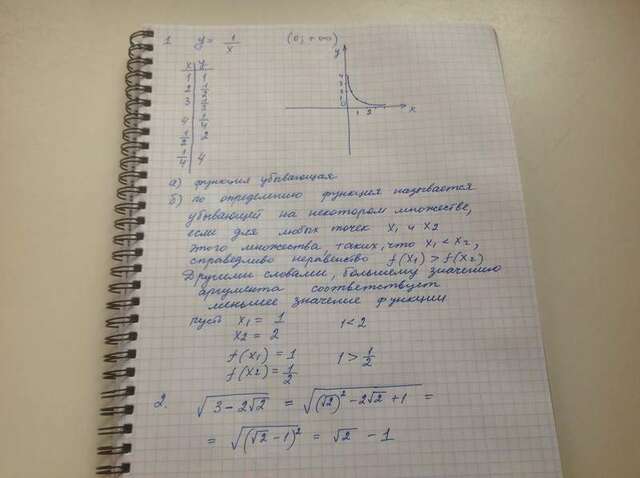 1 y = 1/x (0; +∞)
x y
1 1
2 1/2
3 1/3
4 1/4
1/2 2
1/4 4
y
0 1 2 x
а) функция убывающая
б) по определению функция называется
убывающей на некотором множестве,
если для любых точек x₁ и x₂
этого множества, таких, что x₁ < x₂,
справедливо неравенство f(x₁) > f(x₂)
Другими словами, большему значению
аргумента соответствует
меньшее значение функции
пусть x₁ = 1 1 < 2
x₂ = 2
f(x₁) = 1 1 > 1/2
f(x₂) = 1/2
2. √(3 − 2√2) = √((√2)² − 2√2 + 1) =
= √((√2 − 1)²) = √2 − 1